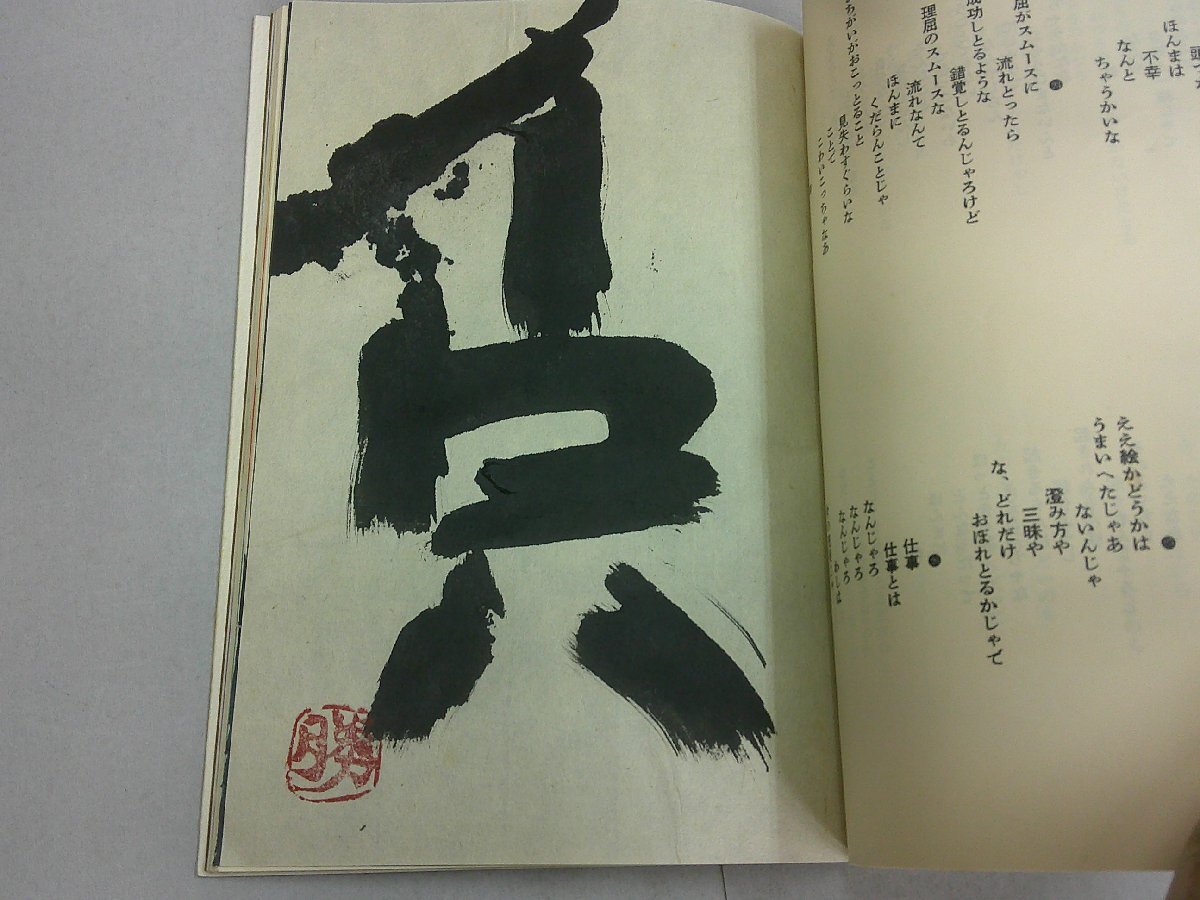 ほんまは
不幸
なんと
ちゃうかいな
屈がスムースに
流れとったら
成功しとるような
錯覚しとるんじゃろけど
理屈のスムースな
流れなんて
ほんまに
くだらんことじゃ
ちがいがおこっとること
見失わすぐらいな
ことて
こわいこっちゃなあ
ええ絵かどうかは
うまいへたじゃあ
ないんじゃ
澄み方や
三昧や
な、どれだけ
おぼれとるかじゃで
仕事
仕事とは
なんじゃろ
なんじゃろ
なんじゃろ
勝